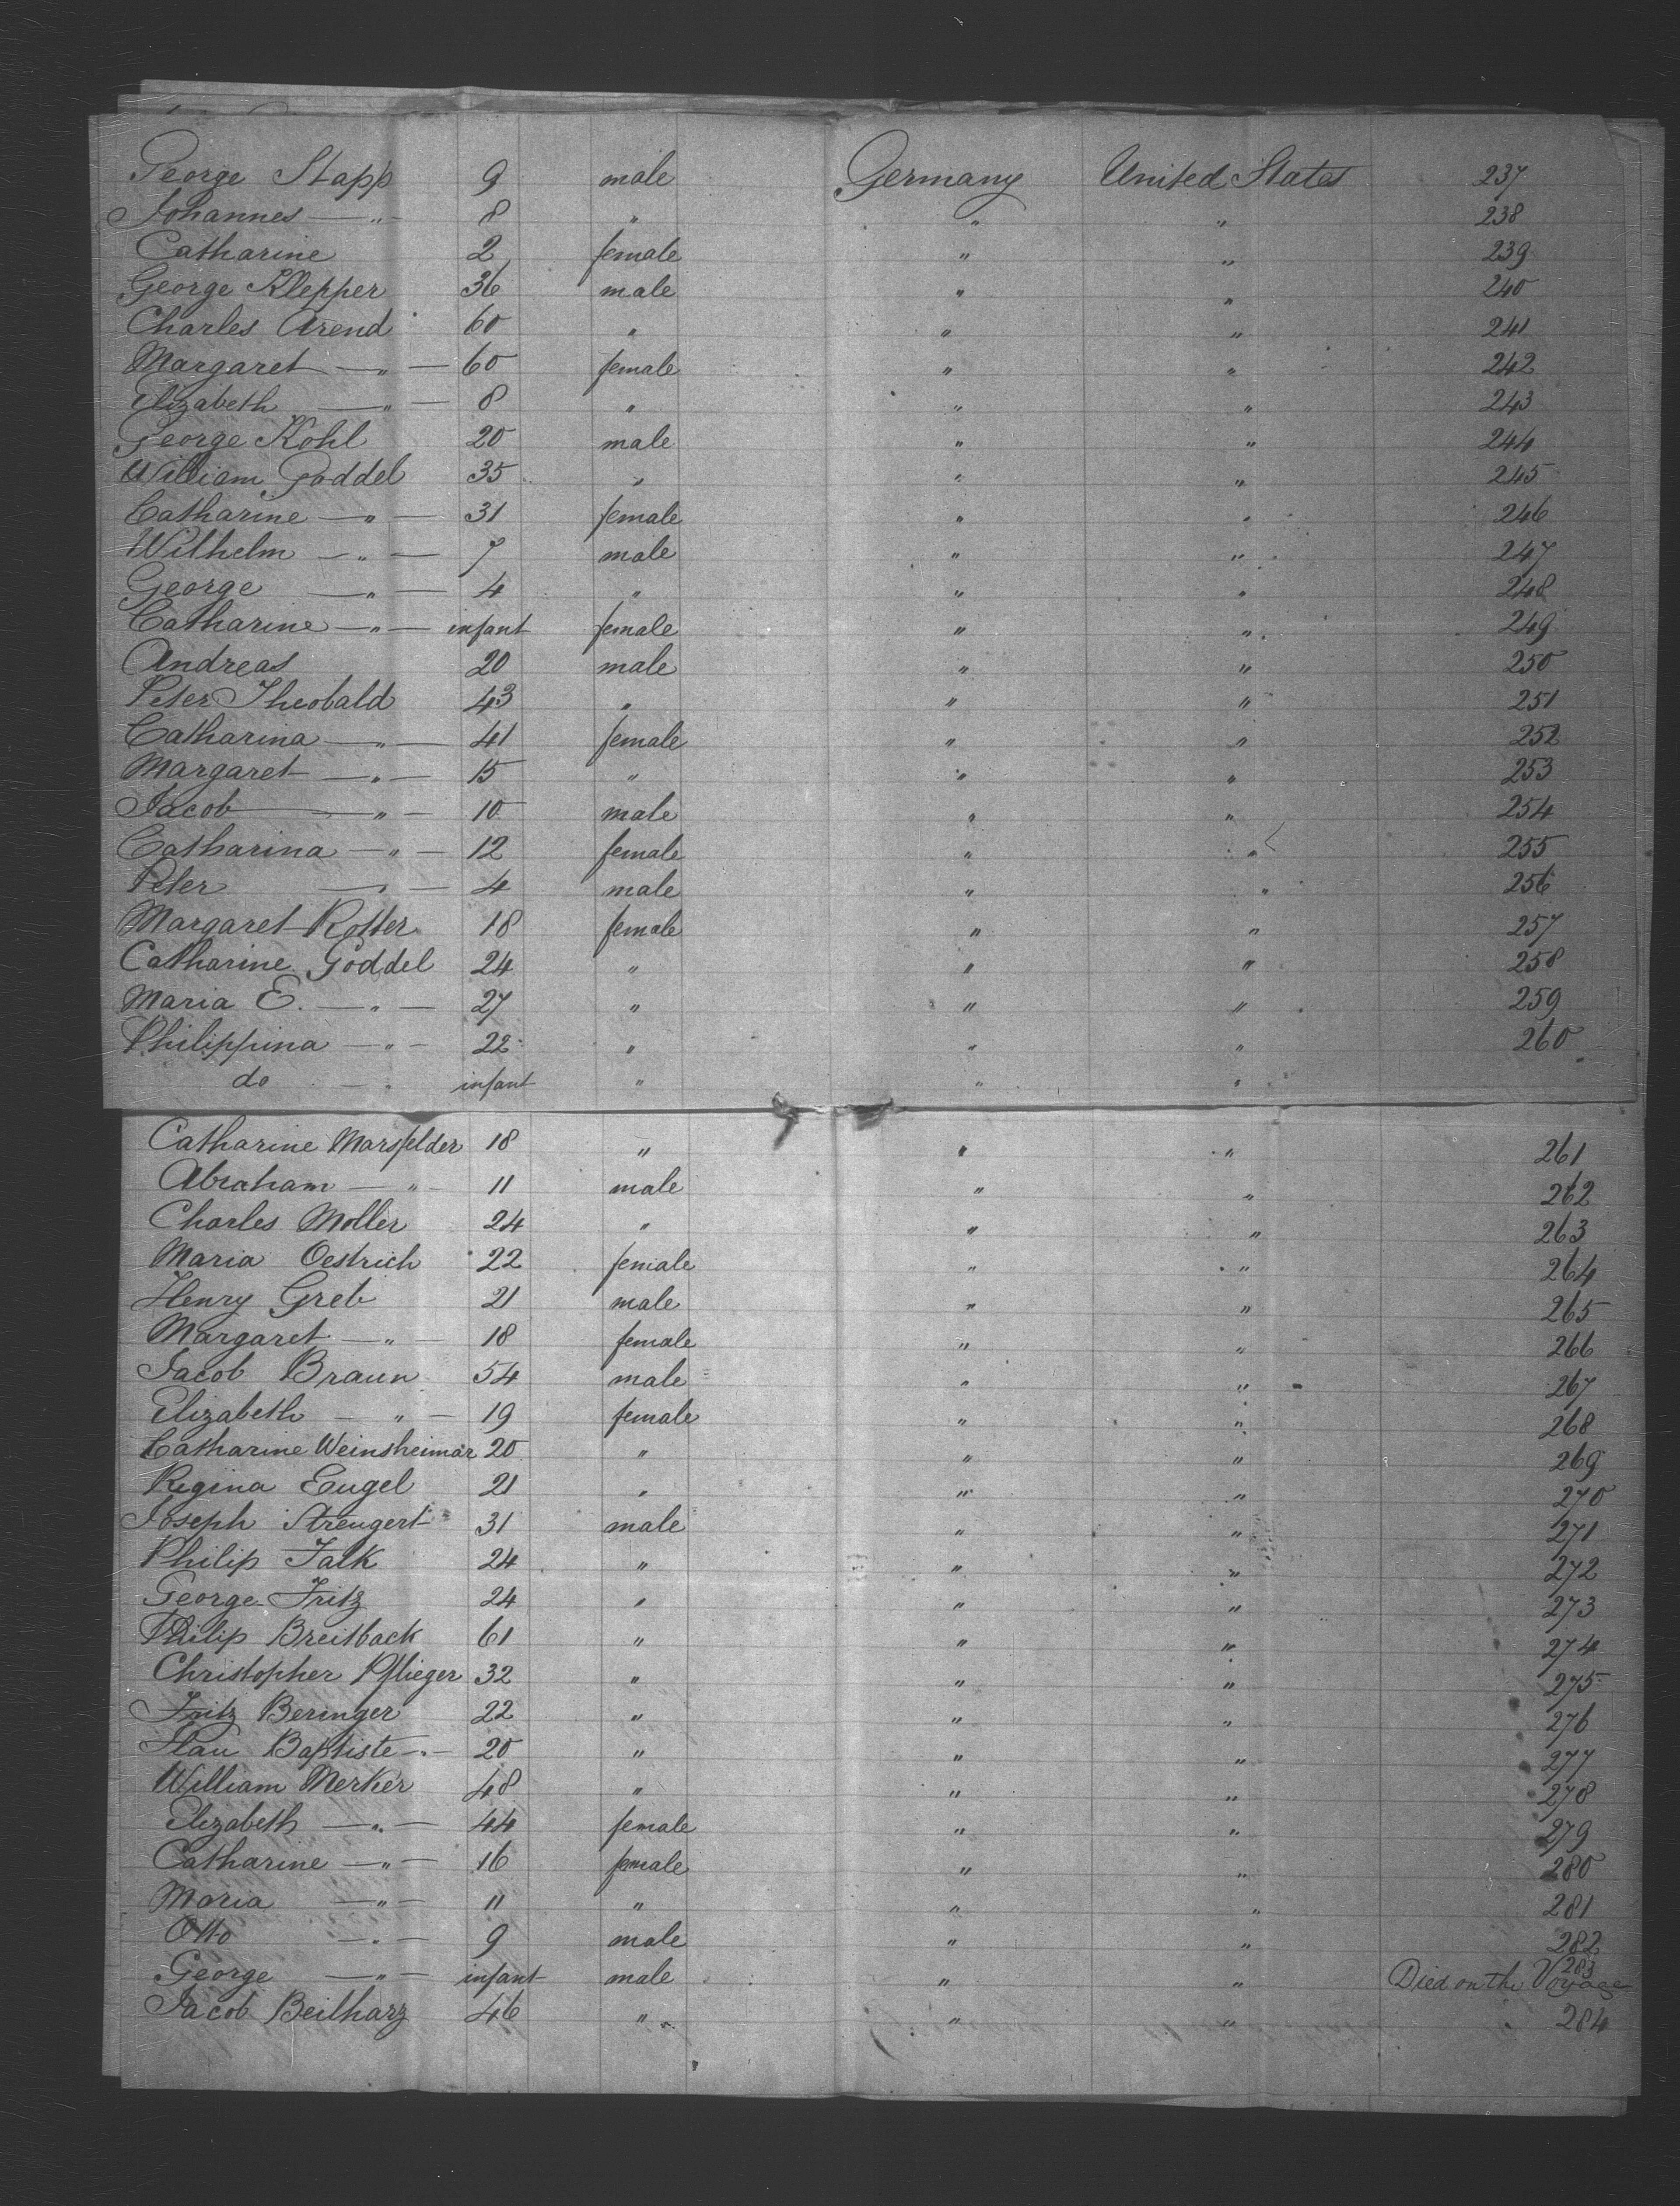 George Stapp 9 male Germany United States 237
Johannes —"— 8 " " " 238
Catharine 2 female " " 239
George Klepper 36 male " " 240
Charles Arend 60 " " " 241
Margaret —"— 60 female " " 242
Elizabeth —"— 8 " " " 243
George Kohl 20 male " " 244
William Goddel 35 " " " 245
Catharine —"— 31 female " " 246
Wilhelm —"— 7 male " " 247
George —"— 4 " " " 248
Catharine —"— infant female " " 249
Andreas 20 male " " 250
Peter Theobald 43 " " " 251
Catharina —"— 41 female " " 252
Margaret —"— 15 " " " 253
Jacob —"— 10 male " " 254
Catharina —"— 12 female " " 255
Peter —"— 4 male " " 256
Margaret Rotter 18 female " " 257
Catharine Goddel 24 " " " 258
Maria E. —"— 27 " " " 259
Philippina —"— 22 " " " 260
do —"— infant " " "
Catharine Marsfelder 18 " " " 261
Abraham —"— 11 male " " 262
Charles Moller 24 " " " 263
Maria Oestrich 22 female " " 264
Henry Greb 21 male " " 265
Margaret —"— 18 female " " 266
Jacob Braun 54 male " " 267
Elizabeth —"— 19 female " " 268
Catharine Weinsheimar 20 " " " 269
Regina Eugel 21 " " " 270
Joseph Streugert 31 male " " 271
Philip Falk 24 " " " 272
George Fritz 24 " " " 273
Philip Breitback 61 " " " 274
Christopher Pflieger 32 " " " 275
Fritz Beringer 22 " " " 276
Baptiste —"— 20 " " " 277
William Merker 48 " " " 278
Elizabeth —"— 44 female " " 279
Catharine —"— 16 female " " 280
Maria —"— 11 " " " 281
Otto —"— 9 male " " 282
George —"— infant male " " Died on the Voyage 283
Jacob Beilharz 46 " " " 284